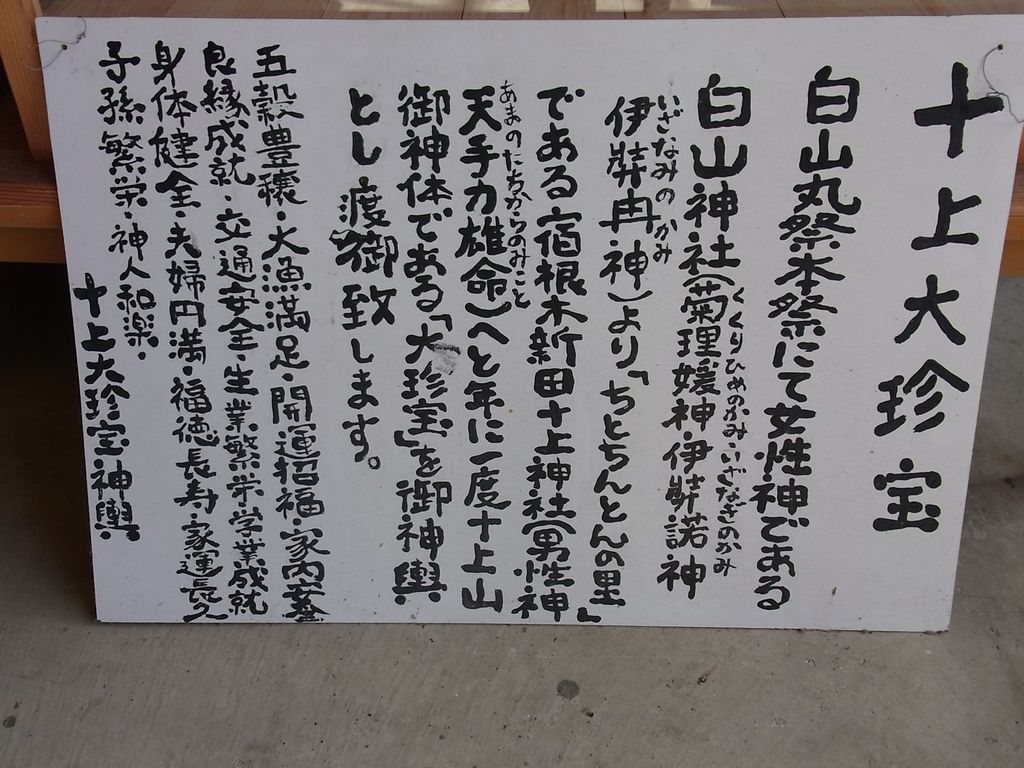 十上大珍宝
白山丸祭本祭にて女性神である
白山神社(菊理媛神伊弉諾神
くくりひめのかみ・いざなぎのかみ
伊弉冉神)より「ちとちんとんの里」
いざなみのかみ
である宿根木新田十上神社(男性神
天手力雄命)へと年に一度十上山
あまのたぢからのみこと
御神体である「大珍宝」を御神輿
とし渡御致します。
五穀豊穣・大漁満足・開運招福・家内安全
良縁成就・交通安全・生業繁栄・学業成就
身体健全・夫婦円満・福徳長寿・家運長久
子孫繁栄・神人和楽・
十上大珍宝神輿